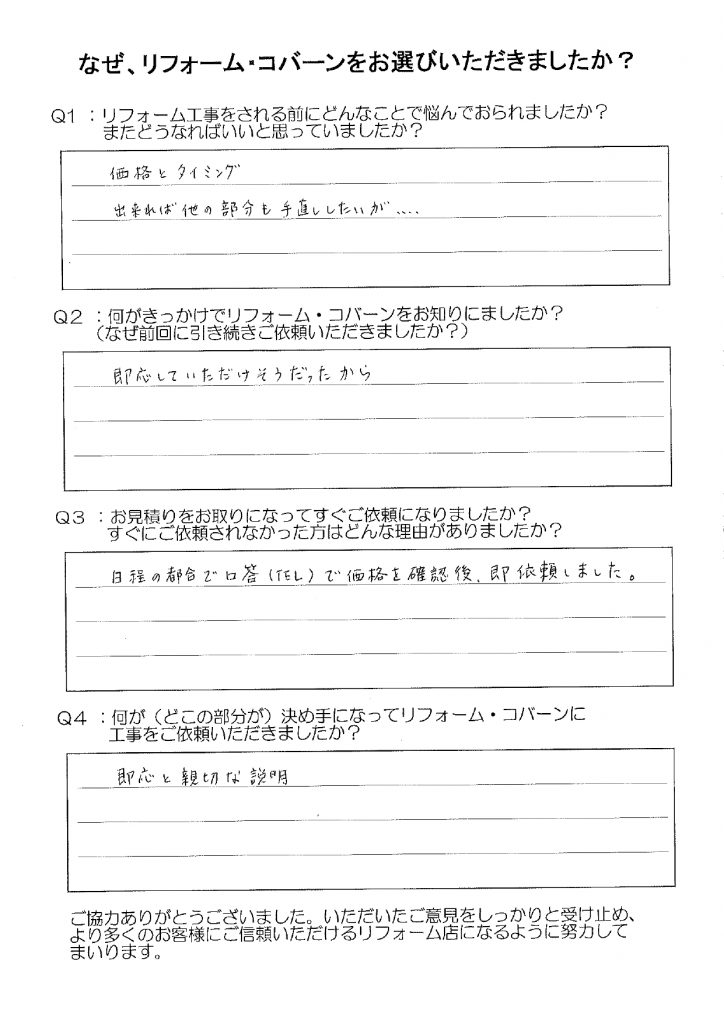 なぜ、リフォーム・コバーンをお選びいただきましたか？
Q1 ：リフォーム工事をされる前にどんなことで悩んでおられましたか？
またどうなればいいと思っていましたか？
価格とタイミング
出来れば他の部分も手直ししたいが....
Q2 ：何がきっかけでリフォーム・コバーンをお知りにましたか？
（なぜ前回に引き続きご依頼いただきましたか？）
即応していただけそうだったから
Q3 ：お見積りをお取りになってすぐご依頼になりましたか？
すぐにご依頼されなかった方はどんな理由がありましたか？
日程の都合で口答（TEL）で価格を確認後、即依頼しました。
Q4 ：何が（どこの部分が）決め手になってリフォーム・コバーンに
工事をご依頼いただきましたか？
即応と親切な説明
ご協力ありがとうございました。いただいたご意見をしっかりと受け止め、
より多くのお客様にご信頼いただけるリフォーム店になるように努力して
まいります。